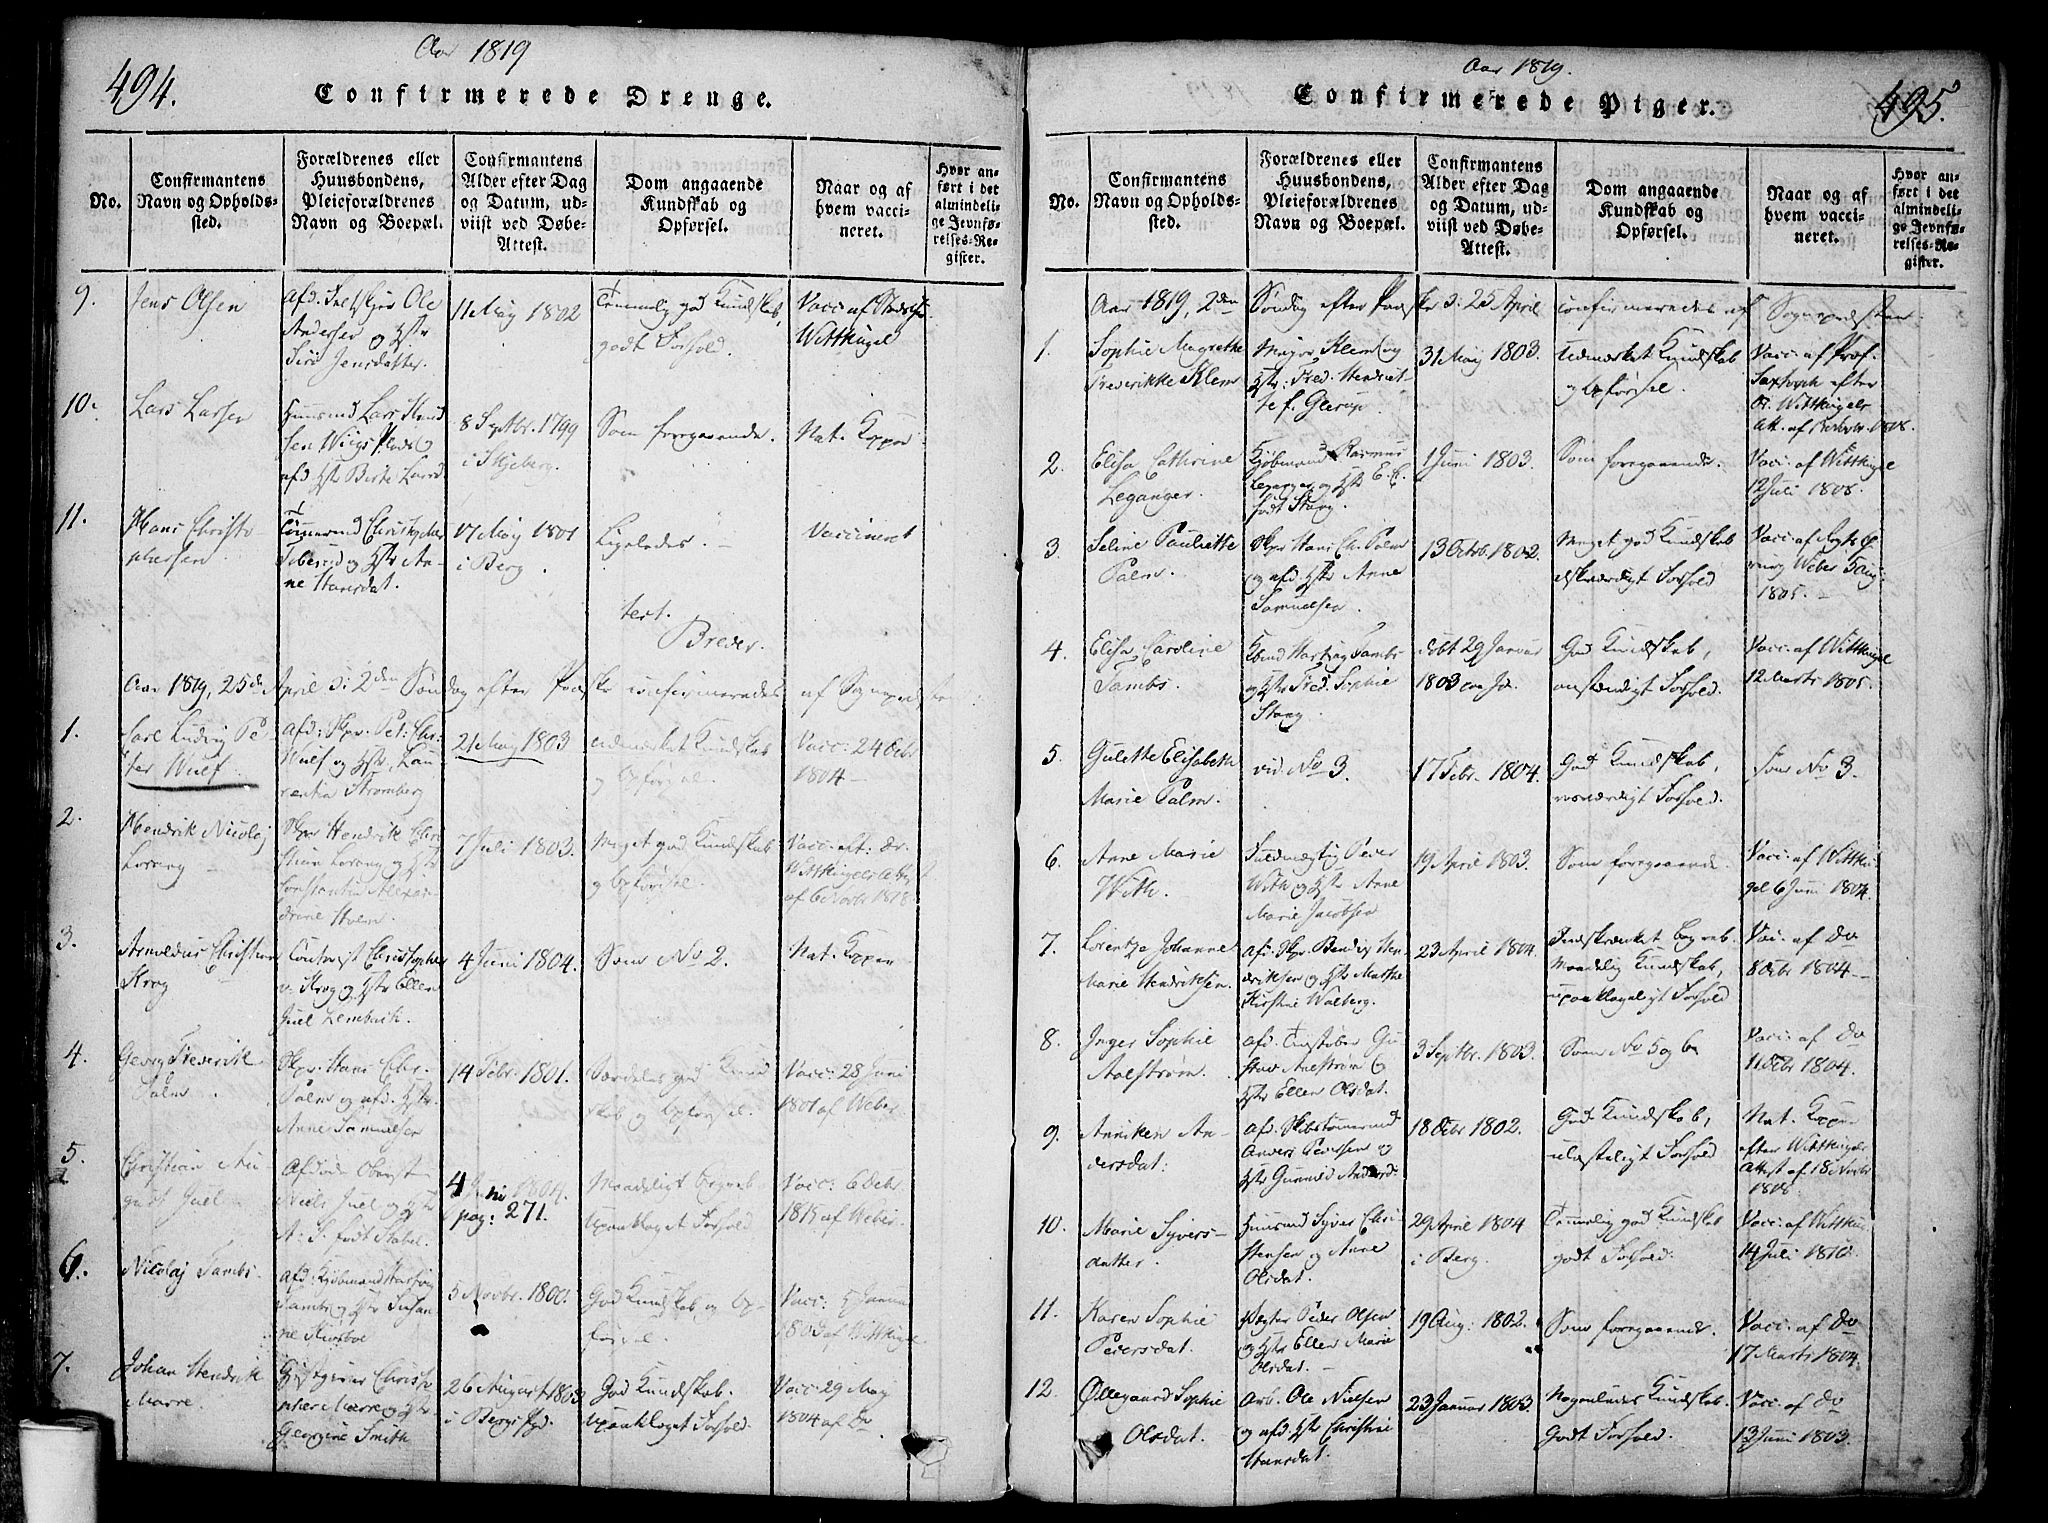 Aar 1819
494.
Confirmerede Drenge.
No.
Confirmantens
Navn og Opholds-
sted.
Forældrenes eller
Huusbondens,
Pleieforældrenes
Navn og Boepæl.
Confirmantens
Alder efter Dag
og Datum, ud-
viist ved Døbe-
Attest.
Dom angaaende
Kundskab og
Opførsel.
Naar og af
hvem vacci-
neret.
Hvor an-
ført i det
almindeli-
ge Jevnfø-
relses-Re-
gister.
9.
Jens Olsen
afd. Ole
Andersen og Hstr
Siri Jensdatter.
11 May 1802
Temmelig god Kundskab,
godt Forhold.
Vacc. af
Wittkugel
10.
Lars Larsen
Huusmd Lars
sen og
afd. Hstr Berte
8 Septbr. 1799
i Skjeberg.
Som foregaaende.
Nat. Kopper
11.
Hans Christo-
phersen
Christopher
og Hstr An-
ne Hansdat.
17 May 1801
i Berg.
Ligeledes.
Vaccineret
test.
Breder.
Aar 1819, 25de April ɔ: 2den Søndag efter Paaske confirmeredes af Sognepræsten
1.
Carl Ludvig Pe-
ter Wulf.
afd: Skpr. Pet: Chr:
Wulf og Hstr. Lau-
rentia Stromberg
21 May 1803
Udmærket Kundskab
og Opførsel.
Vacc: 24 Octbr.
1804
2.
Hendrik Nicolaj
Lorang
Skpr Hendrik Chri-
stian Lorang og Hstr
Constantia Alexan-
drine Holm
7 Juli 1803.
Meget god Kundskab
og Opførsel.
Vacc. alt: Dr.
Wittkugels Att.
af 6 Novbr 1818
3.
Arnoldus Christian
Krog
Christopher
v. Krog og Hstr Ellen
Juel Lembach.
4 Juni 1804.
Som No 2.
Nat. Kopper
4.
Georg Frederik
Palm.
Skpr. Hans Chr.
Palm og afd. Hstr.
Anne Samuelsen
14 Febr. 1801.
Særdeles god Kund-
skab og Opførsel.
Vacc: 28 Juni
1801 af Weber
5.
Christian Au-
gust Juel
Afdøde Oberst
Niels Juel og Hstr
A: S. født Stabel.
4 Juni 1804.
pag: 271.
Maadeligt Begreb
Upaaklaget Forhold
Vacc: 6 Octbr.
af Weber.
6.
Nicolaj Tambs.
afd: Kjøbmand Hartvig
Tambs og Hstr Susan-
ne
5 Novbr. 1800.
God Kundskab og Op-
førsel.
Vacc: 5 Januar
af Wittkugel
7.
Johan Hendrik
Marre.
Gjestgiver Christo-
pher Marre og Hstr
Georgine Smith
26 August 1803
i Bergs Pgd.
God Kundskab.
Upaaklaget Forhold
Vacc: 29 May
1804 af Do
Aar 1819.
495.
Confirmerede Piger.
No.
Confirmantens
Navn og Opholds-
sted.
Forældrenes eller
Huusbondens,
Pleieforældrenes
Navn og Boepæl.
Confirmantens
Alder efter Dag
og Datum, ud-
viist ved Døbe-
Attest.
Dom angaaende
Kundskab og
Opførsel.
Naar og af
hvem vacci-
neret.
Hvor an-
ført i det
almindeli-
ge Jevnfø-
relses-Re-
gister.
Aar 1819, 2den Søndag efter Paaske ɔ: 25 April confirmeredes af Sognepræsten
1.
Sophie Magrethe
Frederikke Klem
Major Klem og
Hstr: Fred. Henriet-
te f. Glerup.
31 May 1803.
Udmærket Kundskab
og Opførsel.
Vacc. af Prof.
Saxtorph efter
Dr. Wittkugels
Att. af 1808.
2.
Elisa Cathrine
Leganger.
Kjøbmand Rasmus
Leganger og Hstr E. C.
født Stang.
1 Juni 1803.
Som foregaaende.
Vacc. af Wittkugel
12 Juli 1808.
3.
Seline Pauliette
Palm.
Skpr Hans Chr. Palm
og afd. Hstr Anne
Samuelsen.
13 Octb. 1802.
Meget god Kundskab
elskværdigt Forhold
Vacc. af
Weber 5 Aug.
1805.
4.
Elisa Caroline
Tambs.
Kbmd Hartvig Tambs
og Hstr Fred. Sophie
Stang.
døbt 29 Januar
1803
God Kundskab,
anstændigt Forhold.
Vacc. af Wittkugel
12 Marts 1805.
5.
Gulette Elisabeth
Marie Palm.
vid. No 3.
17 Febr. 1804.
God Kundskab,
roesværdigt Forhold.
Som No 3.
6.
Anne Marie
With.
Fuldmægtig Peder
With og Hstr Anne
Marie Jacobsen
19 April 1803.
Som foregaaende.
Vacc. af Wittku-
gel 6 Juni 1804.
7.
Lorentze Johanne
Marie Hendriksen.
afd. Skpr. Hen-
driksen og Hstr Marthe
Kirstine Walberg.
23 April 1804.
Indskrænket Begreb.
Maadelig Kundskab,
upaaklageligt Forhold
Vacc. af Do
8 Octbr 1804
8.
Inger Sophie
Aalstrøm.
afd. Gu-
stav Aalstrøm og
Hstr Ellen Olsdat.
3 Septbr. 1803.
Som No 5 og 6
Vacc: af Do
11 Octbr 1804.
9.
Anniken An-
dersdat:
afd. Skibstømmermd
Anders Pedersen og
Hstr Gunnild Andersd:
18 Octbr 1802.
God Kundskab,
ulasteligt Forhold
Nat. Kopper
efter Wittkugels
Attest af 18 Novbr
1818.
10.
Marie Syvers-
datter.
Huusmd Syver Chri-
stensen og Anne
Olsdat.
29 April 1804
i Berg.
Temmelig god Kundskab
godt Forhold.
Vacc. af Wittku:
14 Juli 1810.
11.
Karen Sophie
Pedersdat.
Peder Olsen
og Hstr Ellen Marie
Olsdat.
19 Aug: 1802.
Som foregaaende.
Vacc. af Do
17 Marts 1804.
12.
Øllegaard Sophie
Olsdat.
Arb. Ole Nielsen
og afd. Hstr Christine
Hansdat.
23 Januar 1803.
Nogenlunde Kundskab.
Godt Forhold.
Vacc. af Do
13 Juni 1803.